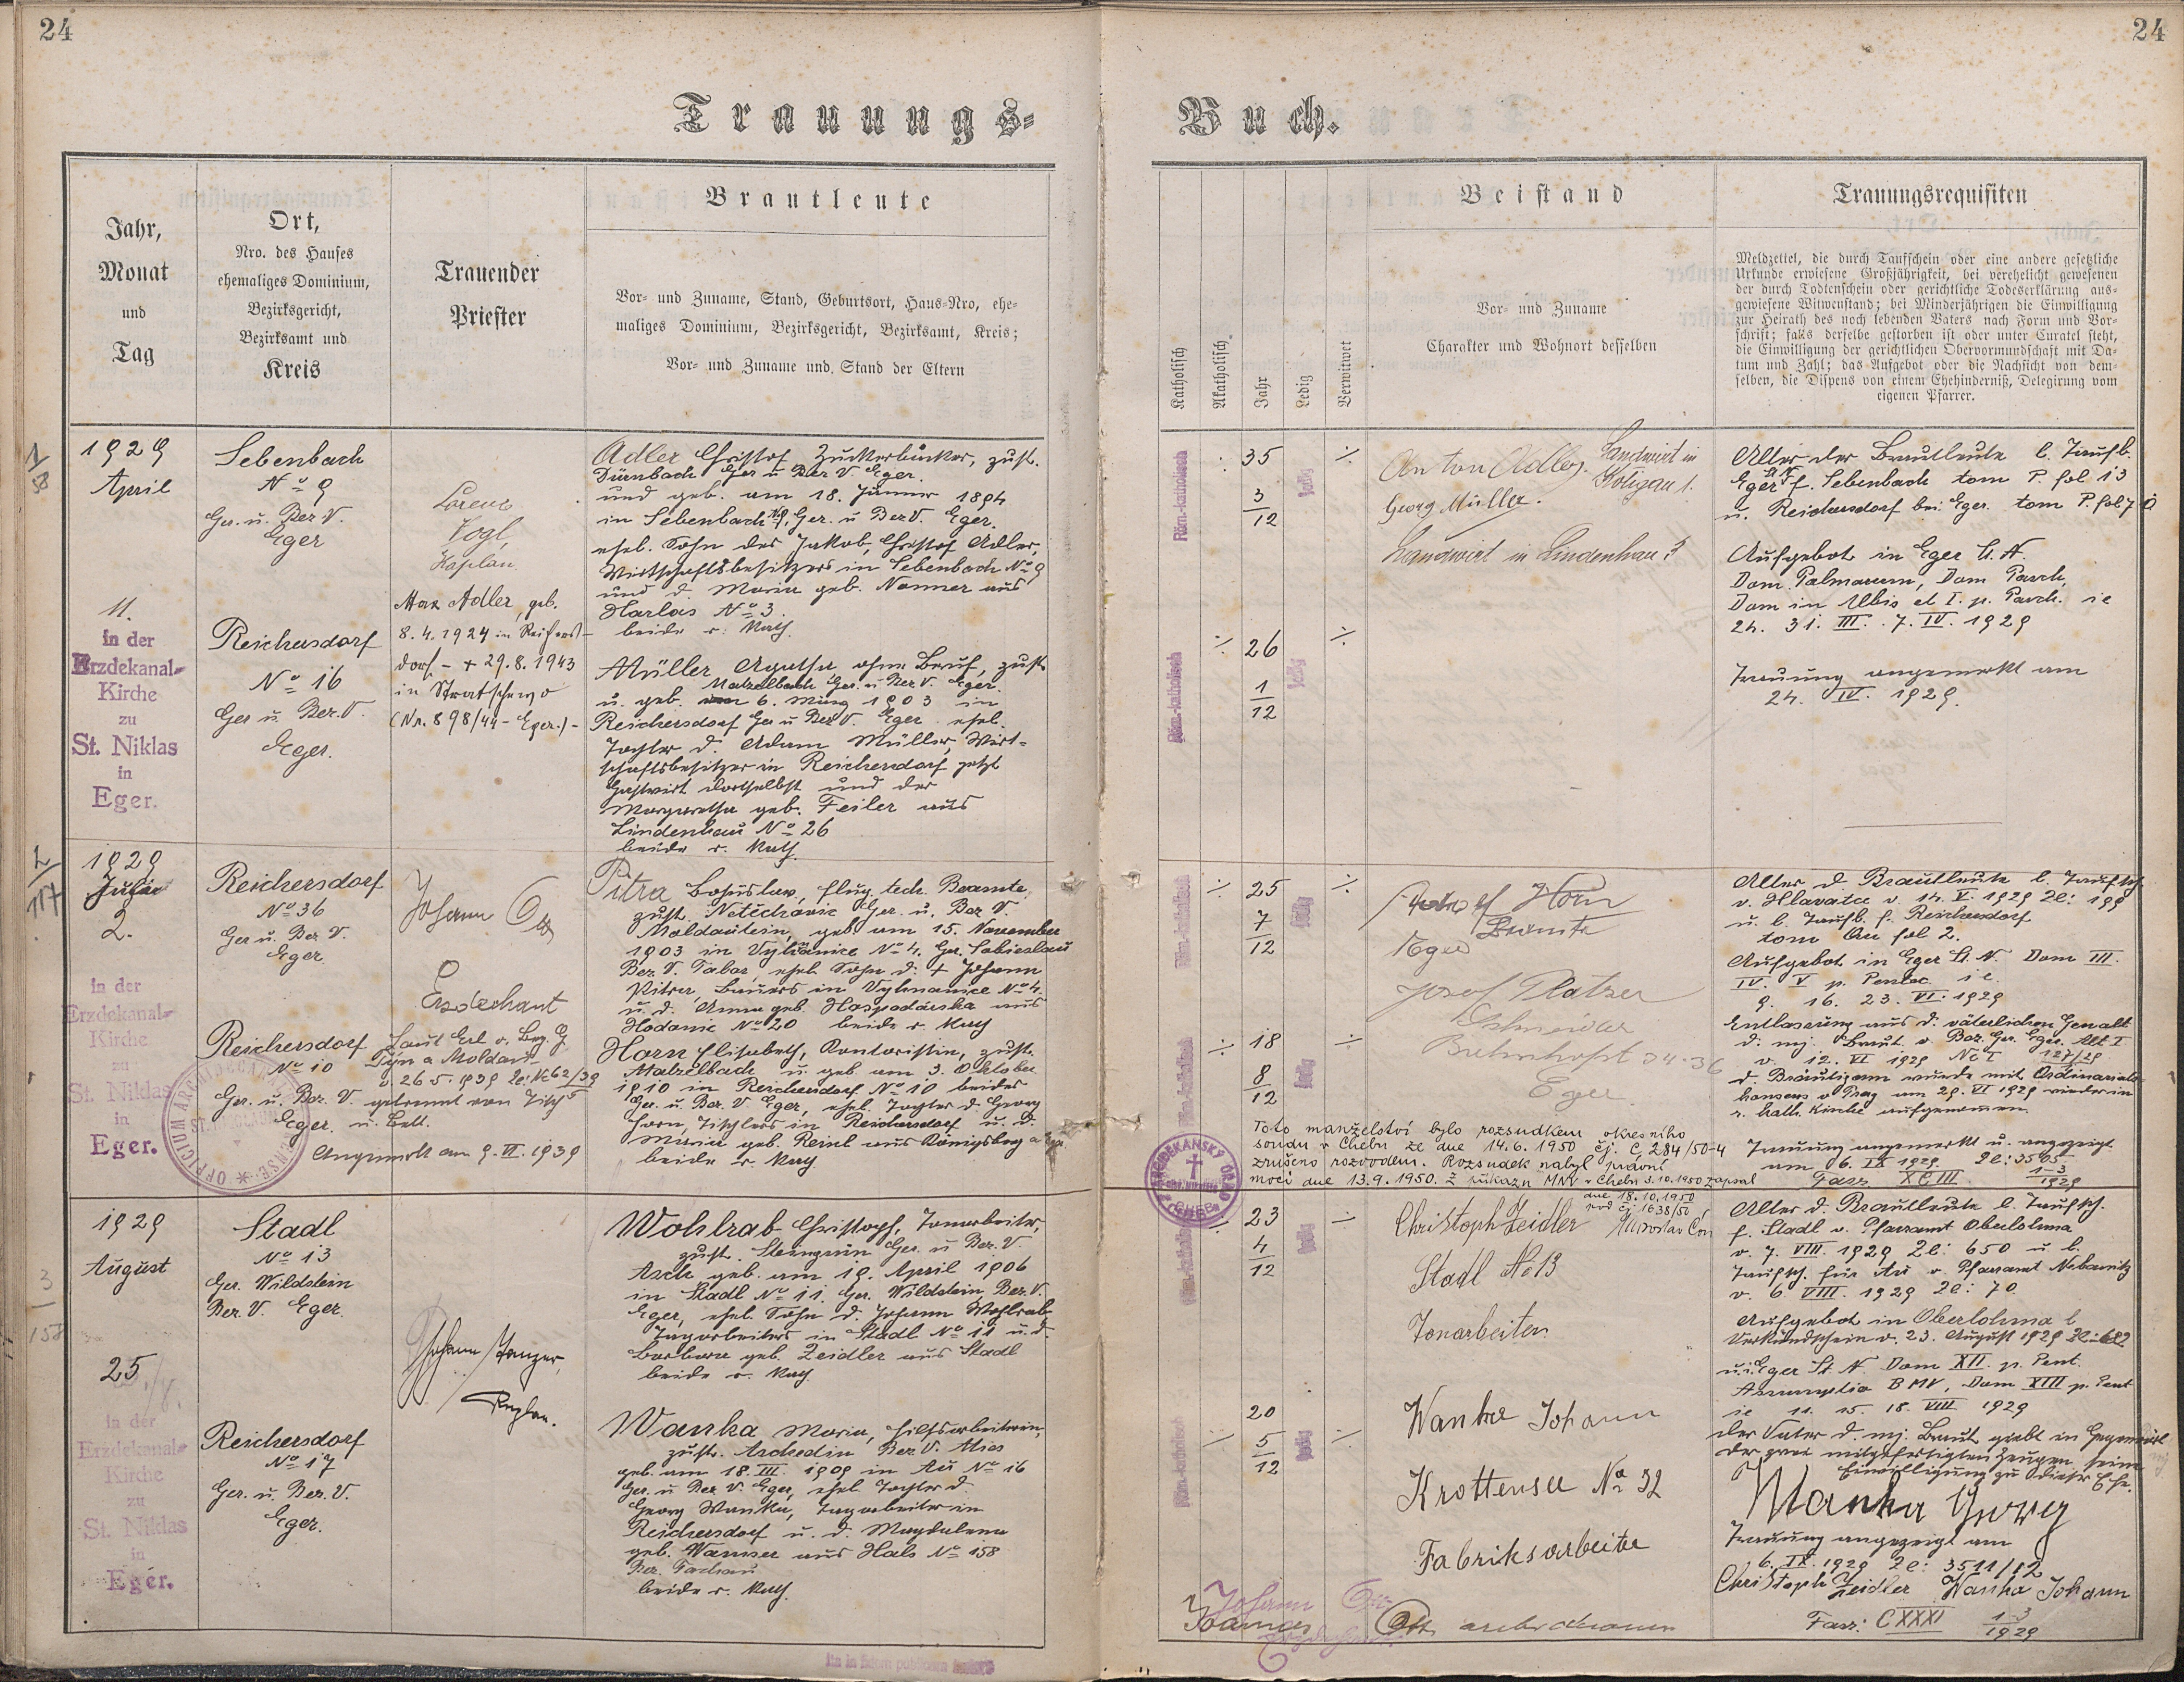 24
24
Trauungs-
Buch.
Jahr,
Monat
und
Tag
Ort,
Nro. des Hauses
ehemaliges Dominium,
Bezirksgericht,
Bezirksamt und
Kreis
Trauender
Priester
Brautleute
Vor- und Zuname, Stand, Geburtsort, Haus-Nro, ehe-
maliges Dominium, Bezirksgericht, Bezirksamt, Kreis;
Vor- und Zuname und Stand der Eltern
Katholisch
Akatholisch
Jahr
Ledig
Verwitwet
Beistand
Vor- und Zuname
Charakter und Wohnort desselben
Trauungsrequisiten
Meldzettel, die durch Taufschein oder eine andere gesetzliche
Urkunde erwiesene Großjährigkeit, bei verehelicht gewesenen
der durch Todtenschein oder gerichtliche Todeserklärung aus-
gewiesene Witwenstand; bei Minderjährigen die Einwilligung
zur Heirath des noch lebenden Vaters nach Form und Vor-
schrift; falls derselbe gestorben ist oder unter Curatel steht,
die Einwilligung der gerichtlichen Obervormundschaft mit Da-
tum und Zahl; das Aufgebot oder die Nachsicht von dem-
selben, die Dispens von einem Ehehinderniß, Delegirung vom
eigenen Pfarrer.
1
58
1929
April
11.
in der
Erzdekanal-
Kirche
zu
St. Niklas
in
Eger.
Sebenbach
No 9
Ger. u. Bez. V.
Eger
Reichersdorf
No 16
Ger u. Bez. V.
Eger.
Lorenz
Vogl,
Kaplan
Max Adler, geb.
8.4.1924 in Reichers-
dorf - + 29.8.1943
in Stratschewo
(Nr. 898/44 - Eger.) -
Adler Christof Zuckerbäcker, zust.
Dürnbach Ger u. Bez V. Eger.
und geb. am 18. Jänner 1894
in Sebenbach No 9, Ger. u Bez V. Eger.
ehel. Sohn des Jakob, Christof Adler,
Wirtschaftsbesitzers in Sebenbach No 9
und d. Maria geb. Nonner aus
Harlas No 3.
beide r. kath.
Müller Agatha ohne Beruf, zust.
Matzelbach Ger. u Bez V. Eger.
u. geb. 6. März 1903 in
Reichersdorf Ger u Bez V. Eger ehel.
Tochter d. Adam Müller, Wirt-
schaftsbesitzer in Reichersdorf jetzt
Gastwirt dortselbst und der
Margaretha geb. Feiler aus
Lindenhau No 26
beide r. kath.
Röm.-katholisch
35
3
12
ledig
Röm.-katholisch
26
1
12
ledig
Anton Adler. Landwirt in
Georg Müller.
Landwirt in Lindenhau 3
Alter der Brautleute l. Taufb.
Eger St N f. Sebenbach tom P. fol 13
u. Reichersdorf bei Eger. tom P. fol 70
Aufgebot in Eger St. N.
Dom. Palmarum, Dom Pasch,
Dom in Albis et I. p. Pasch. ie
24. 31. III. 7. IV. 1929
Trauung angemerkt am
24. IV. 1929.
2
117
1929
Juli
2.
in der
Erzdekanal-
Kirche
zu
St. Niklas
in
Eger.
Reichersdorf
No 36
Ger u. Bez V.
Eger
Reichersdorf
No 10
Ger. u. Bez. V.
Eger
Johann Ott
Erzdechant
Laut Erl v. Bez. G
Týn a Moldau
v. 26 5. 1939 Zl: Nc 62/39
getrennt von Tisch
u. Bett.
Angemerkt am 9. VI. 1939
Pitra Bohuslav, flug. tech. Beamte,
zust. Netěchovic Ger. u. Bez V.
Moldautein, geb am 15. November
1903 in Vylvanice No 4. Ger. Sobieslau
Bez. V. Tabor ehel. Sohn d. + Johann
Pitra, Bauers in No 4.
u. d. Anna geb. Hospodárska aus
Hodonic No 20 beide r. kath
Horn Elisabeth, Kontoristin, zust.
Matzelbach u. geb am 3. Oktober
1910 in Reichersdorf No 10 beides
Ger. u. Bez. V Eger, ehel. Tochter d. Georg
Horn, Tischlers in Reichersdorf u. d.
Maria geb. Reinl aus Königsberg a Eger
beide r. kath
Röm.-katholisch
25
7
12
ledig
Röm.-katholisch
18
8
12
ledig
Horn
Beamte
Eger
Josef Platzer
Schneider
Bahnhofst 34-36
Eger
Toto manželství bylo rozsudkem okresního
soudu v Chebu ze dne 14.6.1950 čj. C 284/50-4
zrušeno rozvodem. Rozsudek nabyl právní
moci dne 13.9.1950. Z příkazu MNV v Chebu 3.10.1950 zapsal
dne 18.10.1950
pod čj. 1638/50
Alter d. Brautleute l. Taufsch.
v. Hlavatce v. 14. V. 1929 Zl: 199
u. l. Taufb. f. Reichersdorf
tom Au fol 2.
Aufgebot in Eger St. N. Dom III.
IV. V p. Pentec. ie.
9. 16. 23. VI. 1929
Entlassung aus d. väterlichen Gewalt
d. mj. Braut v. Bez. Ger. Eger. Abt I
v. 12. VI 1929 Nc I 127/29
d. Bräutigam wurde mit Ordinariats-
konsens v Prag am 29. VI 1929 wieder in
r. kath. Kirche aufgenommen.
Trauung angemerkt u. angezeigt
am 6. IX 1929. Zl: 3505
Fasz. XCIII 1-3
1929
3
158
1929
August
25
in der
Erzdekanal-
Kirche
zu
St. Niklas
in
Eger.
Stadl
No 13
Ger. Wildstein
Bez. V. Eger.
Reichersdorf
No 17
Ger. u. Bez. V.
Eger.
Johann Tanzer
Kaplan.
Wohlrab Christoph, Tonarbeiter,
zust. Steingrün Ger. u Bez. V.
Asch geb. am 19. April 1906
in Stadl No 11. Ger. Wildstein Bez. V.
Eger, ehel. Sohn d. Johann Wohlrab
Tagarbeiters in Stadl No 11 u. d.
Barbara geb. Zeidler aus Stadl
beide r. kath.
Wanka Maria, Hilfsarbeiterin,
zust. Bez V. Mies
geb. am 18. III. 1909 in Au No 16
Ger. u Bez V. Eger, ehel. Tochter d.
Georg Wanka, Tagarbeiter in
Reichersdorf u. d. Magdalena
geb. Wanner aus Hals No 158
Bez. Tachau
beide r. kath.
Röm.-katholisch
23
4
12
ledig
Röm.-katholisch
20
5
12
ledig
Christoph Zeidler
Stadl No 13
Tonarbeiter
Wanka Johann
Krottensee No 32
Fabriksarbeiter
Johann Ott
Ott archidecanus
Alter d. Brautleute l. Taufsch.
f. Stadl v. Pfarramt Oberlohma
v. 7. VIII. 1929 Zl: 650 u l.
Taufsch. für Au v. Pfarramt Nebanitz
v. 6 VIII. 1929 Zl: 70
Aufgebot in Oberlohma l
Verkündschein v. 23. August 1929 Zl: 682
u. i. Eger St. N Dom XII. p. Pent.
Assumptio BMV, Dom XIII p. Pent
ie 11. 15. 18. VIII 1929
Der Vater d. mj. Braut giebt in Gegenwart
der zwei mitgefertigten Zeugen seine
Einwilligung zu dieser Ehe.
Wanka Georg
Trauung angezeigt am
6. IX. 1929 Zl: 3511/12
Christoph Zeidler Wanka Johann
Fasz: CXXXI 1-3
1929